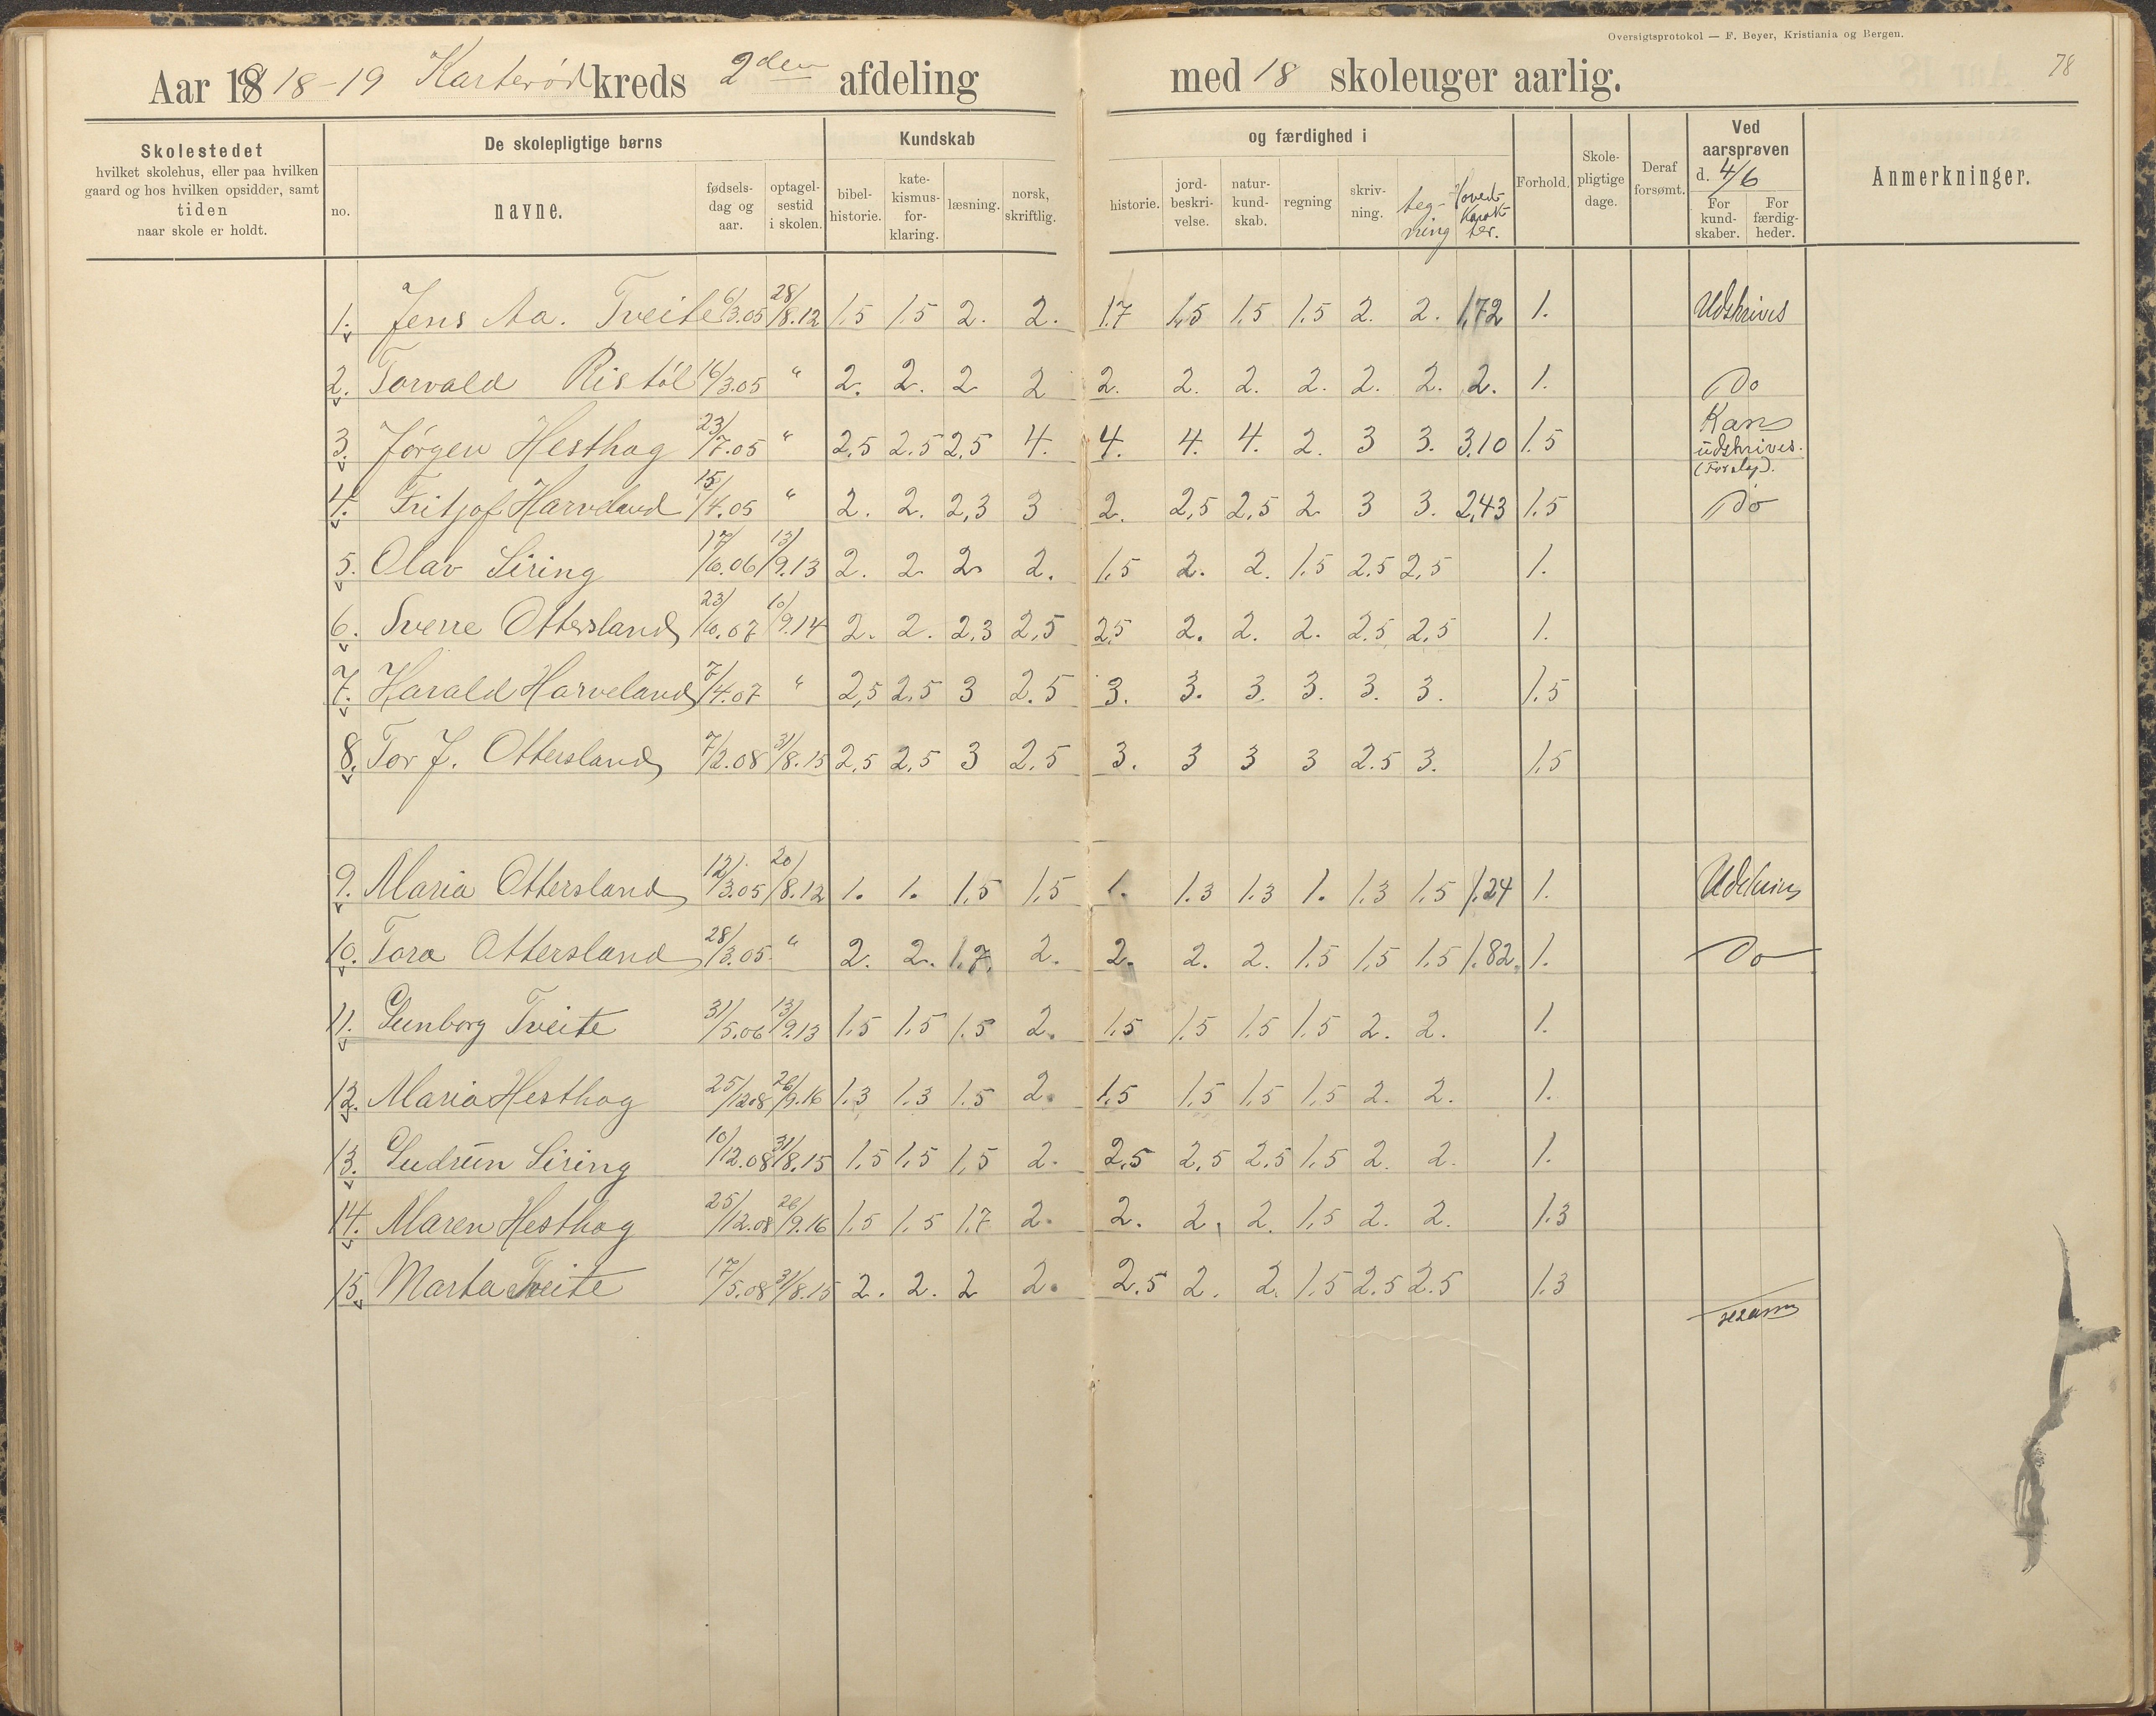 Oversigtsprotokol — F. Beyer, Kristiania og Bergen.
78
Aar 1918-19 Karterød kreds 2den afdeling med 18 skoleuger aarlig.
Skolestedet
hvilket skolehus, eller paa hvilken
gaard og hos hvilken opsidder, samt
tiden
naar skole er holdt.
De skolepligtige børns
no.
navne.
fødsels-
dag og
aar.
optagel-
sestid
i skolen.
Kundskab
bibel-
historie.
kate-
kismus-
for-
klaring.
læsning.
norsk,
skriftlig.
og færdighed i
historie.
jord-
beskri-
velse.
natur-
kund-
skab.
regning
skriv-
ning.
teg-
ning
Hoved-
Karak-
ter.
Forhold.
Skole-
pligtige
dage.
Deraf
forsømt.
Ved
aarsprøven
d. 4/6
For
kund-
skaber.
For
færdig-
heder.
Anmerkninger.
1. Jens Aa. Tveite 6/3.05 28/8.12 1.5 1.5 2. 2. 1.7 1,5 1.5 1.5 2. 2. 1,72 1. Udskrives
2. Torvald Ristöl 16/3.05 " 2. 2. 2 2 2. 2. 2. 2. 2. 2. 2. 1. Do
3. Jørgen Hesthag 23/7.05 " 2,5 2.5 2,5 4. 4. 4. 4. 2. 3 3. 3,10 1.5 Kan
udskrives.
4. Fritjof Harveland 15/4.05 " 2. 2. 2,3 3 2. 2,5 2,5 2 3 3. 2,43 1.5 Do
5. Olav Siring 17/6.06 13/9.13 2. 2 2 2. 1.5 2. 2. 1.5 2.5 2,5 1.
6. Sverre Ottersland 23/10.07 10/9.14 2. 2. 2,3 2,5 2,5 2. 2. 2. 2.5 2,5 1.
7. Harald Harveland 7/4.07 " 2,5 2,5 3 2.5 3. 3. 3. 3. 3. 3. 1.5
8. Tor J. Ottersland 7/2.08 31/8.15 2,5 2,5 3 2,5 3. 3 3 3 2.5 3. 1,5
9. Maria Ottersland 12/3.05 20/8.12 1. 1. 1,5 1,5 1. 1.3 1.3 1. 1.3 1.5 1.24 1.
10. Tora Ottersland 28/3.05 " 2. 2. 1.7. 2. 2. 2. 2. 1.5 1,5 1.5 1.82. 1. Do
11. Gunborg Tveite 31/5.06 13/9.13 1.5 1.5 1.5 2. 1.5 1.5 1.5 1.5 2. 2. 1.
12. Maria Hesthag 25/12.08 26/9.16 1.3 1.3 1.5 2. 1.5 1.5 1.5 1.5 2. 2. 1.
13. Gudrun Siring 10/12.08 31/8.15 1.5 1.5 1,5 2. 2,5 2,5 2.5 1.5 2. 2. 1.
14. Maren Hesthag 25/12.08 26/9.16 1.5 1.5 1.7 2. 2. 2. 2. 1.5 2. 2. 1.3
15. Marta Tveite 17/5.08 31/8.15 2. 2. 2 2. 2.5 2. 2. 1.5 2.5 2.5 1.3